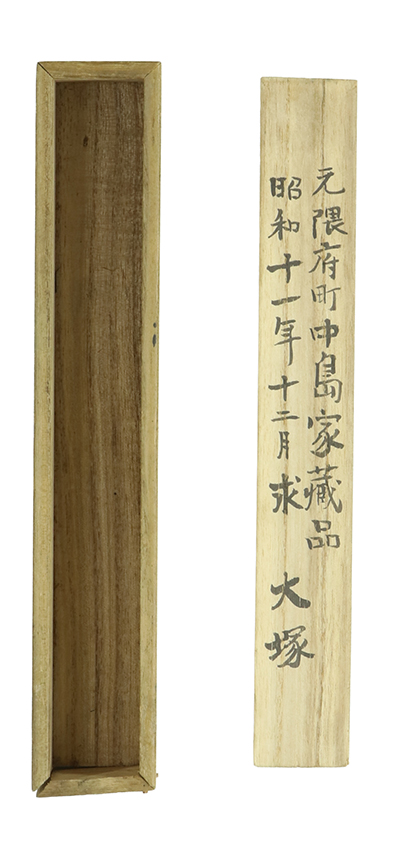 元隈府町中島家藏品
昭和十一年十二月求
大塚